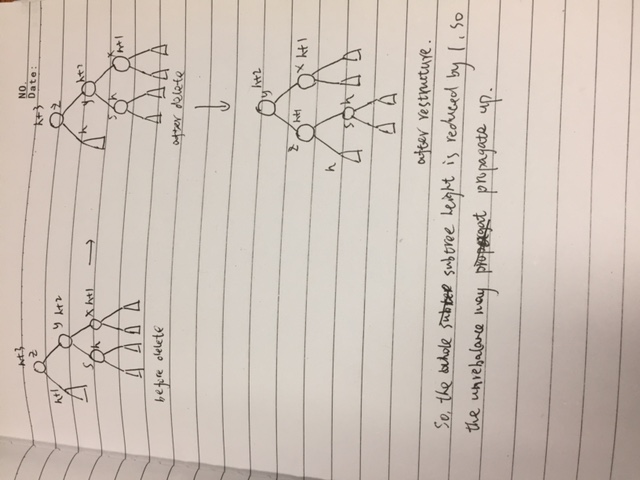 NO.
Date:
h+3
z
h+1
y h+2
s h
x h+1
before delete
h+3
z
h
y h+2
s h
x
h+1
after delete
y h+2
z h+1
x h+1
h
s h
after restructure.
So, the whole subtree subtree height is reduced by 1, so
the unrebalance may propagat propagate up.